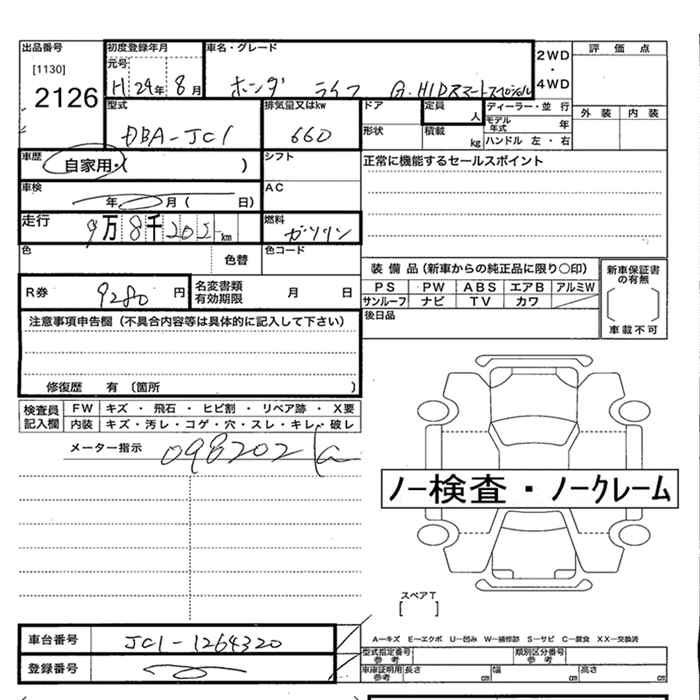 出品番号
[1130]
2126
初度登録年月
元号
H 24年 8月
車名・グレード
ホンダ ライフ G.HIDスマートスペシャル
2WD
・
4WD
評価点
外装 内装
型式
DBA-JC1
排気量又はkw
660
ドア
形状
定員
人
積載
kg
ディーラー・並行
モデル年式 年
ハンドル 左・右
車歴
自家用・( )
シフト
正常に機能するセールスポイント
車検
年 月 ( 日)
AC
走行
9万8千202km
燃料
ガソリン
色
色替
色コード
R券
9280円
名変書類
有効期限 月 日
装備品(新車からの純正品に限り○印)
PS PW ABS エアB アルミW
サンルーフ ナビ TV カワ
後日品
新車保証書
の有無
車載不可
注意事項申告欄(不具合内容等は具体的に記入して下さい)
修復歴 有 (箇所 )
検査員
記入欄
FW キズ・飛石・ヒビ割・リペア跡・X要
内装 キズ・汚レ・コゲ・穴・スレ・キレ・破レ
メーター指示
098202
ノー検査・ノークレーム
スペアT
[ ]
車台番号
JC1-1264320
登録番号
A―キズ E―エクボ U―凹み W―補修跡 S―サビ C―腐食 XX―交換済
型式指定番号
参考
類別区分番号
参考
車庫証明用
参考
長さ cm 幅 cm 高さ cm